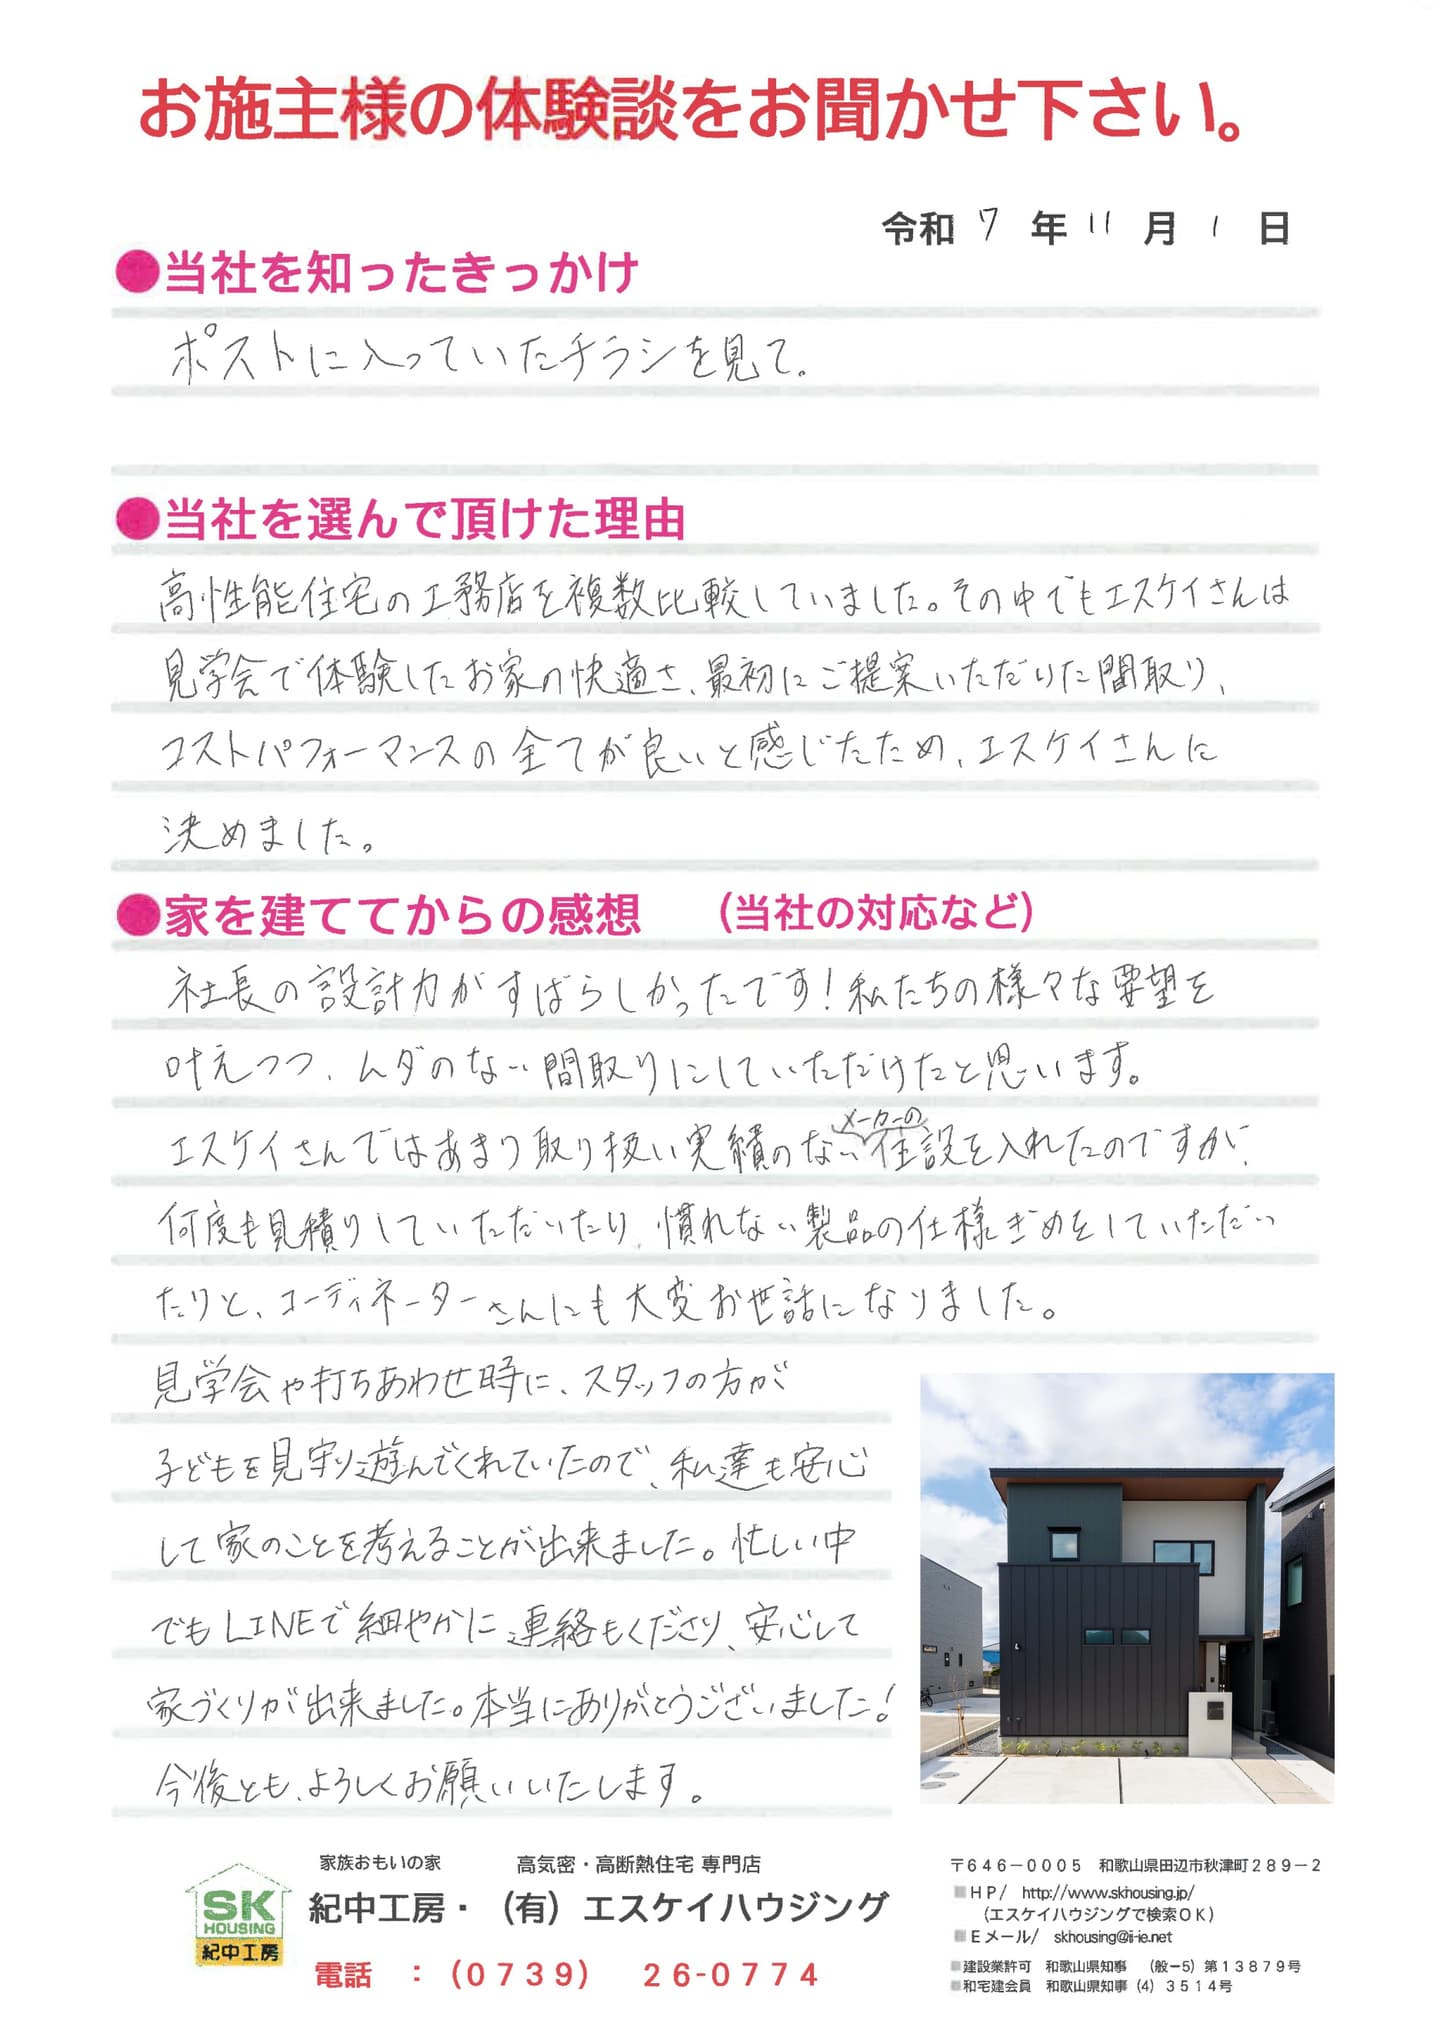 お施主様の体験談をお聞かせ下さい。
令和 7 年 11 月 1 日
●当社を知ったきっかけ
ポストに入っていたチラシを見て。
●当社を選んで頂けた理由
高性能住宅の工務店を複数比較していました。その中でもエスケイさんは
見学会で体験したお家の快適さ、最初にご提案いただいた間取り、
コストパフォーマンスの全てが良いと感じたため、エスケイさんに
決めました。
●家を建ててからの感想 (当社の対応など)
社長の設計力がすばらしかったです!私たちの様々な要望を
叶えつつ、ムダのない間取りにしていただけたと思います。
エスケイさんではあまり取り扱い実績のないメーカーの住設を入れたのですが、
何度も見積りしていただいたり、慣れない製品の仕様ぎめをしていただい
たりと、コーディネーターさんにも大変お世話になりました。
見学会や打ちあわせ時に、スタッフの方が
子どもを見守り遊んでくれていたので、私達も安心
して家のことを考えることが出来ました。忙しい中
でもLINEで細やかに連絡もくださり、安心して
家づくりが出来ました。本当にありがとうございました!
今後とも、よろしくお願いいたします。
SK
HOUSING
紀中工房
家族おもいの家 高気密・高断熱住宅 専門店
紀中工房・(有)エスケイハウジング
電話 :(0739) 26-0774
〒646-0005 和歌山県田辺市秋津町289-2
■HP/ http://www.skhousing.jp/
(エスケイハウジングで検索OK)
■Eメール/ skhousing@ii-ie.net
■建設業許可 和歌山県知事 (般-5)第13879号
■和宅建会員 和歌山県知事(4)3514号